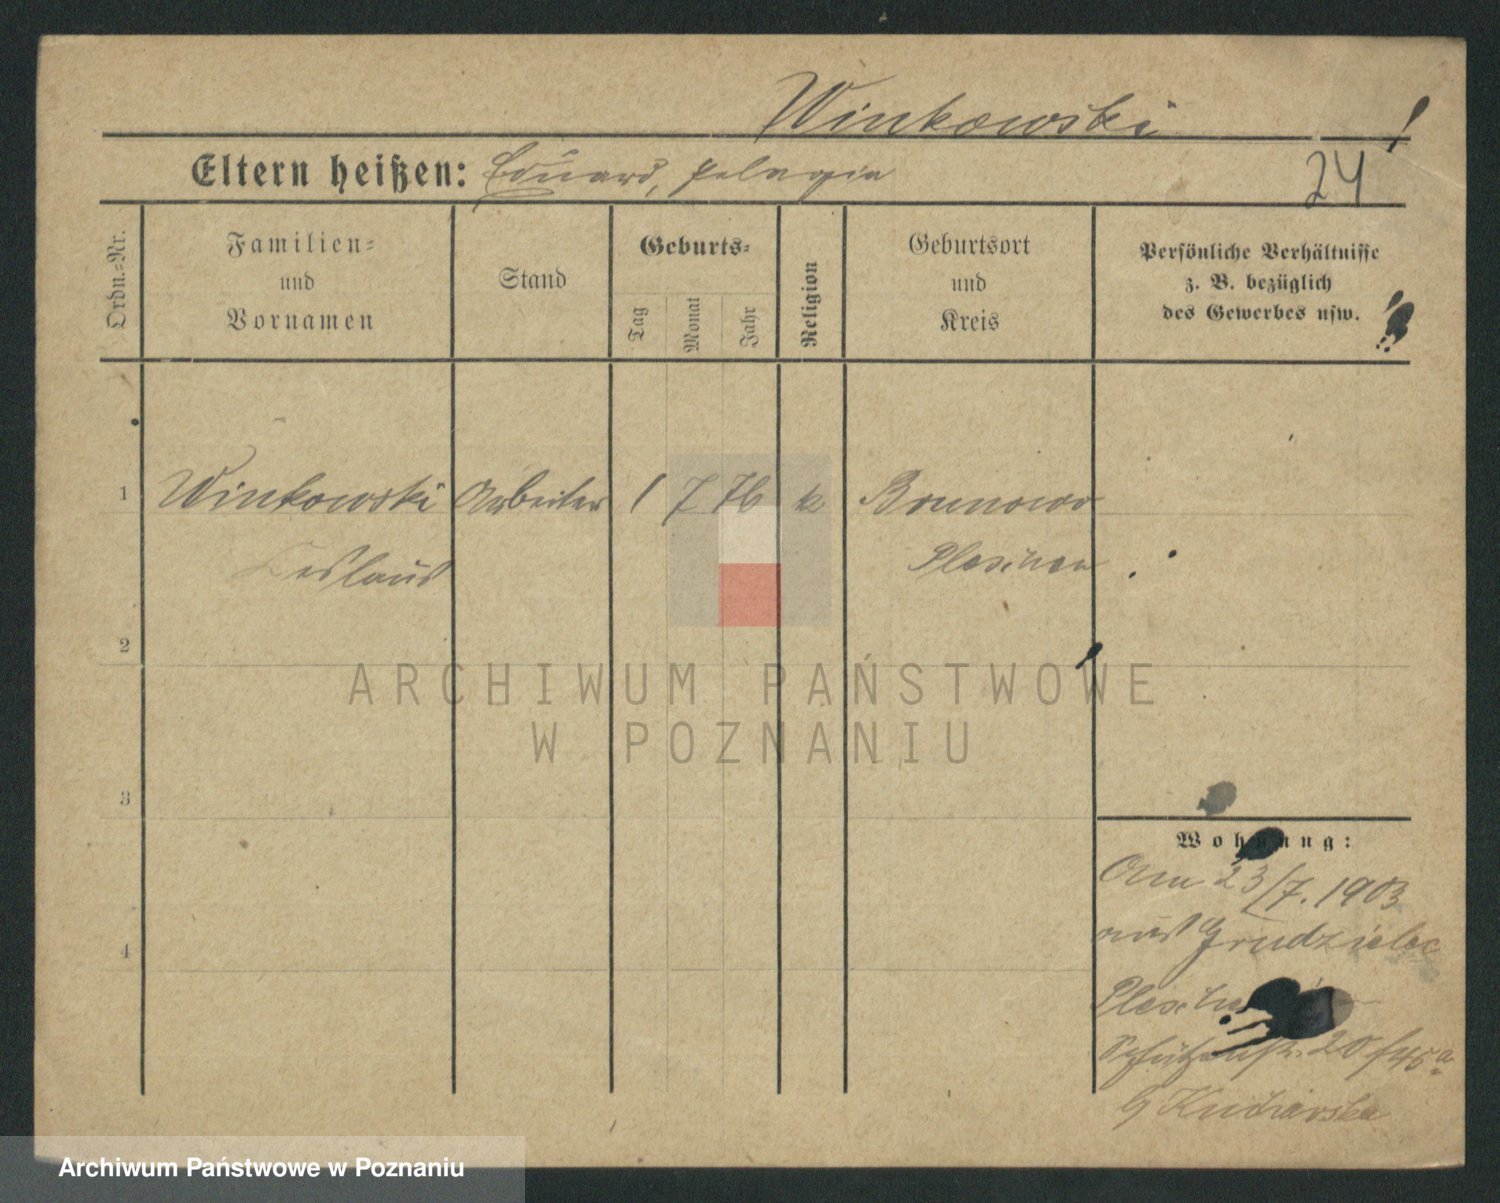 Winkowski
Eltern heißen: Eduard, Pelagia
24
Ordn.=Nr.
Familien=
und
Vornamen
Stand
Geburts=
Tag
Monat
Jahr
Religion
Geburtsort
und
Kreis
Persönliche Verhältnisse
z. B. bezüglich
des Gewerbes usw.
1 Winkowski Arbeiter 1 7 76 k Brunowo
Pleschen
2
3
4
ARCHIWUM PAŃSTWOWE
W POZNANIU
Wohnung:
Am 23/7. 1903
aus Grudzielec
Schützenstr. 20
Archiwum Państwowe w Poznaniu